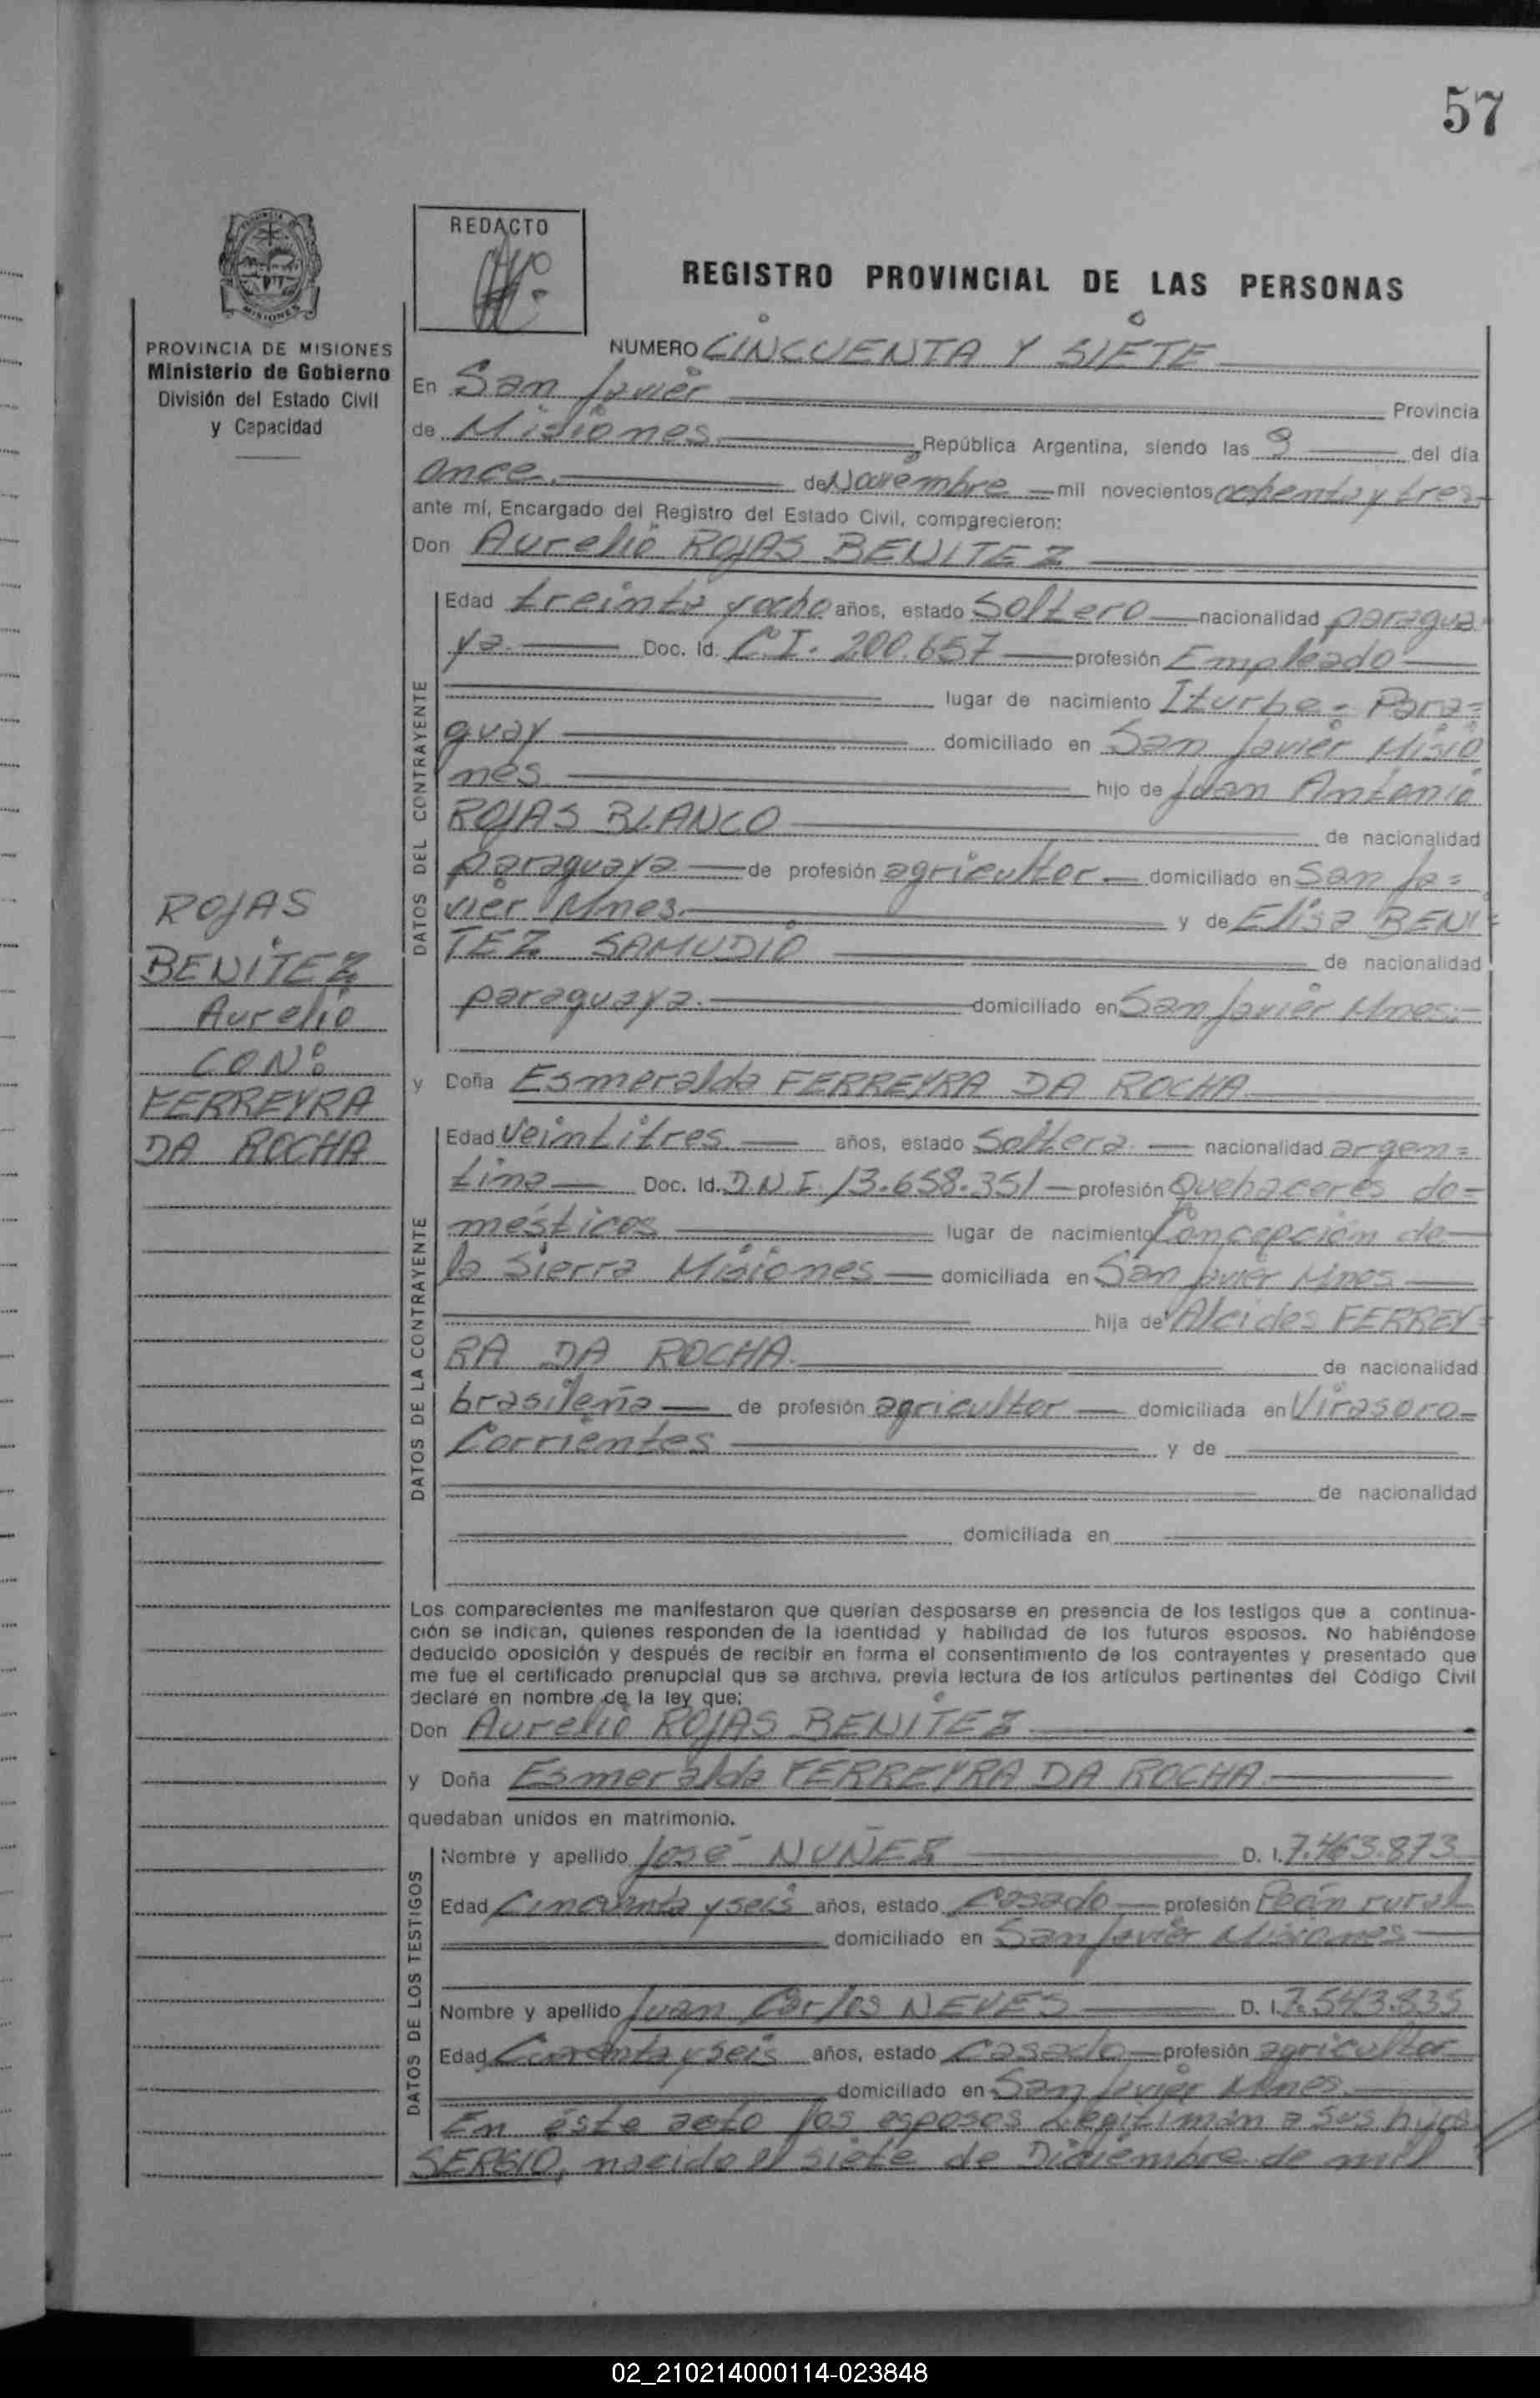 57
REDACTO
REGISTRO PROVINCIAL DE LAS PERSONAS
MISIONES
PROVINCIA DE MISIONES
Ministerio de Gobierno
División del Estado Civil
y Capacidad
ROJAS
BENITEZ
Aurelio
CON:
FERREYRA
DA ROCHA
NUMERO CINCUENTA Y SIETE
En San Javier Provincia
de Misiones República Argentina, siendo las 9 del día
once de Noviembre mil novecientos ochenta y tres
ante mí, Encargado del Registro del Estado Civil, comparecieron:
Don Aurelio ROJAS BENITEZ
DATOS DEL CONTRAYENTE
Edad treinta y ocho años, estado Soltero nacionalidad paragua-
ya Doc. Id. C.I. 200.657 profesión Empleado
lugar de nacimiento Iturbe - Para=
guay domiciliado en San Javier Misio
nes hijo de Juan Antonio
ROJAS BLANCO de nacionalidad
paraguaya de profesión agricultor domiciliado en San Ja=
vier Mnes. y de Elisa BENI=
TEZ SAMUDIO de nacionalidad
paraguaya domiciliado en San Javier Mnes.
y Doña Esmeralda FERREYRA DA ROCHA
DATOS DE LA CONTRAYENTE
Edad Veintitres años, estado Soltera nacionalidad argen=
tina Doc. Id. D.N.I. 13.658.351 profesión Quehaceres do=
mésticos lugar de nacimiento Concepción de
la Sierra Misiones domiciliada en San Javier Mnes
hija de Alcides FERREY=
RA DA ROCHA de nacionalidad
brasileña de profesión agricultor domiciliada en Virasoro
Corrientes y de
de nacionalidad
domiciliada en
Los comparecientes me manifestaron que querían desposarse en presencia de los testigos que a continua-
ción se indican, quienes responden de la identidad y habilidad de los futuros esposos. No habiéndose
deducido oposición y después de recibir en forma el consentimiento de los contrayentes y presentado que
me fue el certificado prenupcial que se archiva, previa lectura de los artículos pertinentes del Código Civil
declaré en nombre de la ley que:
Don Aurelio ROJAS BENITEZ
y Doña Esmeralda FERREYRA DA ROCHA
quedaban unidos en matrimonio.
DATOS DE LOS TESTIGOS
Nombre y apellido José NUÑEZ D. I. 7.463.873
Edad Cincuenta y seis años, estado Casado profesión Peón rural
domiciliado en San Javier Misiones
Nombre y apellido Juan Carlos NEVES D. I. 7.543.835
Edad Cuarenta y seis años, estado Casado profesión agricultor
domiciliado en San Javier Mnes.
En éste acto los esposos Legitiman a sus hijos
SERGIO, nacido el siete de Diciembre de mil
02_210214000114-023848